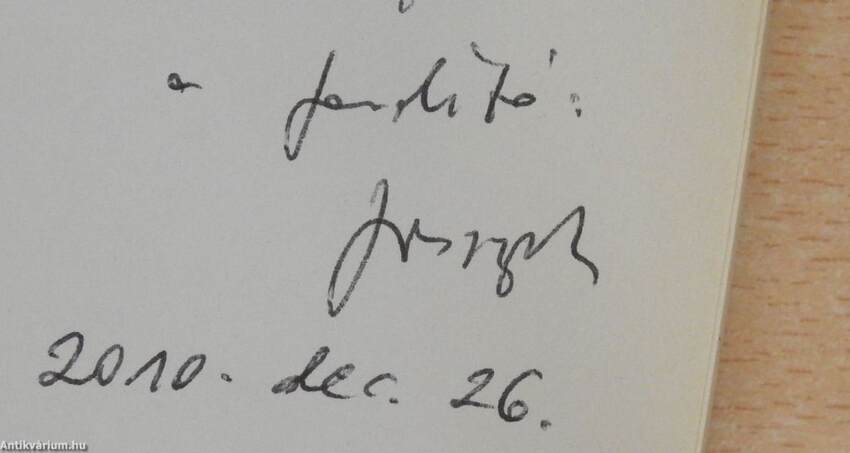 a fordító:
2010. dec. 26.
Antikvárium.hu